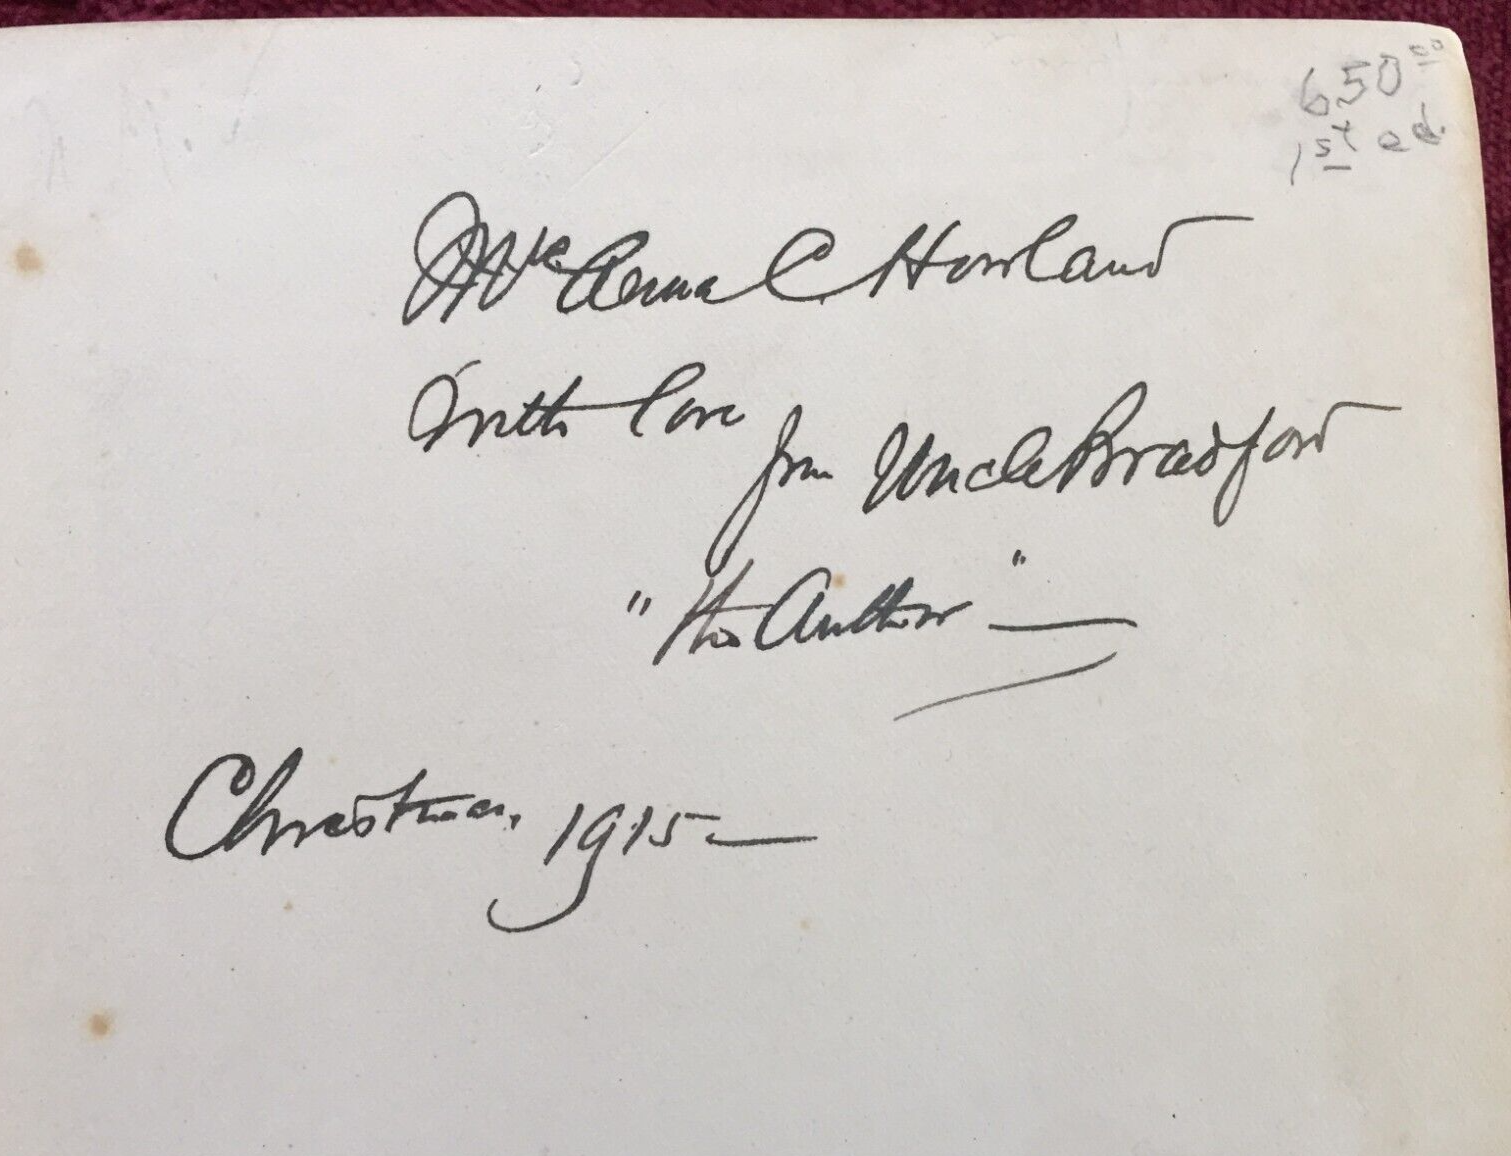 650⁰⁰
1st ed.
Anna C. Howland
With love
from Uncle Bradford
"The Author" —
Christmas, 1915 —